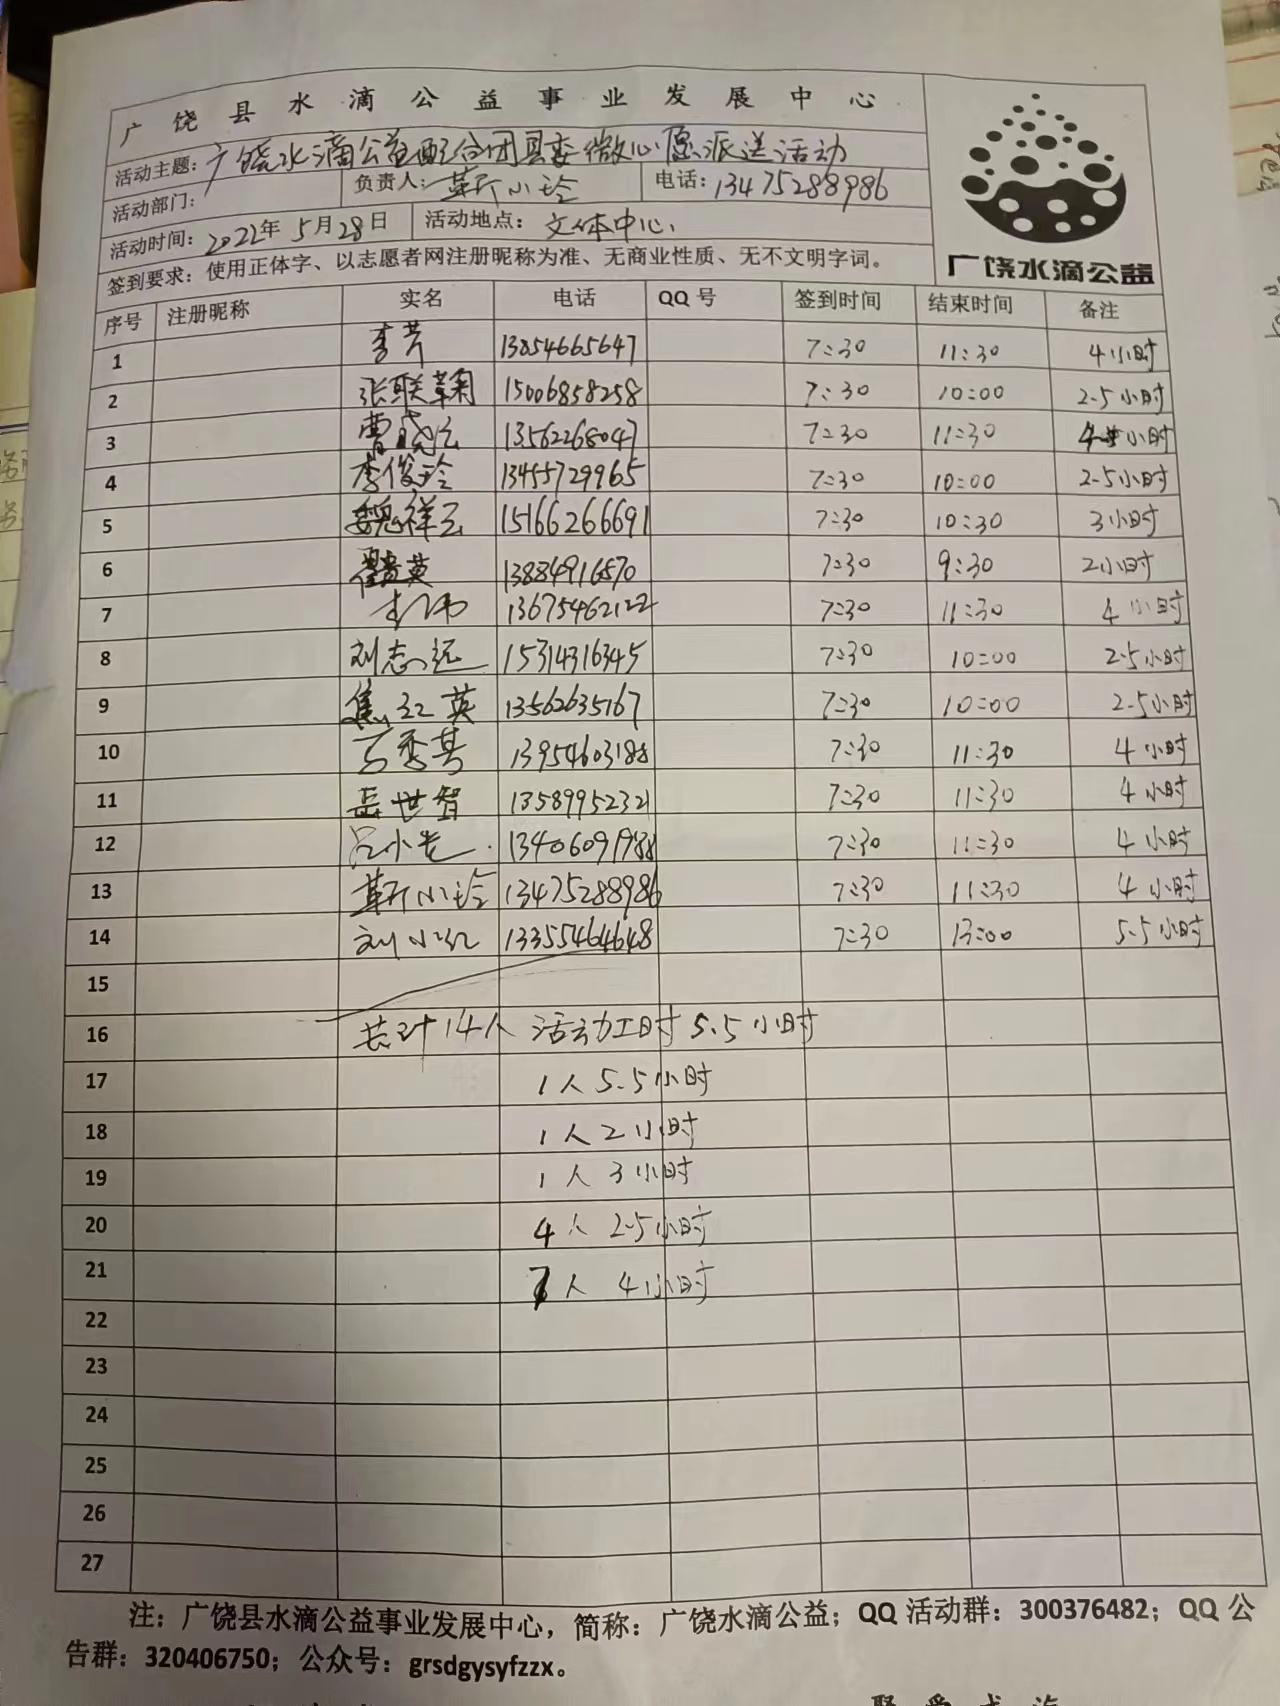 广饶县水滴公益事业发展中心
活动主题：广饶水滴公益配合团县委微心愿派送活动
活动部门： 负责人：靳小玲 电话：13475288986
活动时间：2022年5月28日 活动地点：文体中心
签到要求：使用正体字、以志愿者网注册昵称为准、无商业性质、无不文明字词。
广饶水滴公益
序号 注册昵称 实名 电话 QQ号 签到时间 结束时间 备注
1 李芹 13854665647 7:30 11:30 4小时
2 张联菊 15006858258 7:30 10:00 2.5小时
3 13562268047 7:30 11:30 4小时
4 李俊玲 13455729965 7:30 10:00 2.5小时
5 魏祥云 15166266691 7:30 10:30 3小时
6 13884916570 7:30 9:30 2小时
7 李伟 13675462122 7:30 11:30 4小时
8 刘志远 15314316345 7:30 10:00 2.5小时
9 焦红英 13562635167 7:30 10:00 2.5小时
10 13954603188 7:30 11:30 4小时
11 岳世智 13589952321 7:30 11:30 4小时
12 13406091988 7:30 11:30 4小时
13 靳小玲 13475288986 7:30 11:30 4小时
14 刘小红 13355464648 7:30 13:00 5.5小时
15
16 共计14人 活动工时5.5小时
17 1人5.5小时
18 1人2小时
19 1人3小时
20 4人2.5小时
21 7人4小时
22
23
24
25
26
27
注：广饶县水滴公益事业发展中心，简称：广饶水滴公益；QQ活动群：300376482；QQ公
告群：320406750；公众号：grsdgysyfzzx。